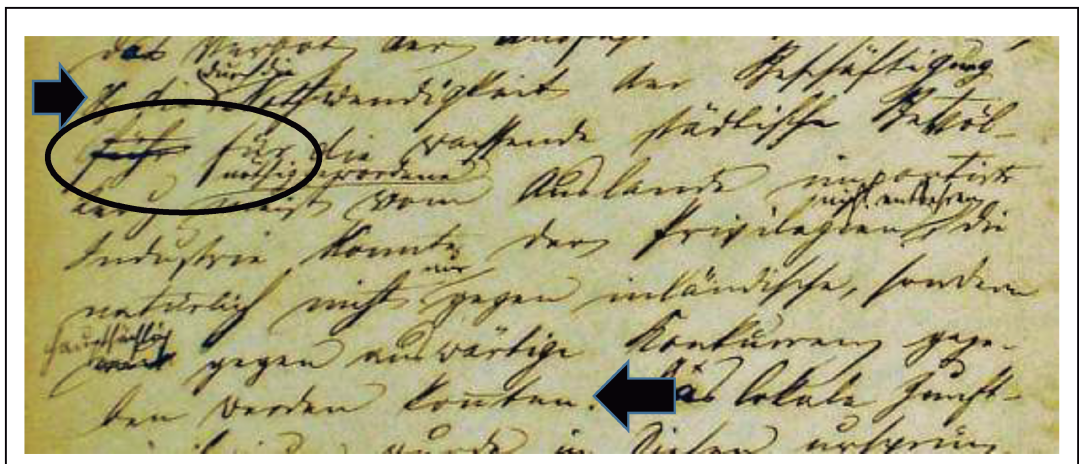 das Verbot der
durch die
& die Nothwendigkeit der Beschäftigung
für die wachsende städtische Bevöl-
nöthig gewordene
meist vom Auslande importirte
nicht entbehren
Industrie konnte der Privilegien, die
nur
natürlich nicht gegen inländische, sondern
hauptsächlich
gegen auswärtige Konkurrenz gege-
ben werden konnten. Das lokale Zunft-
wurde in diesen ursprüng